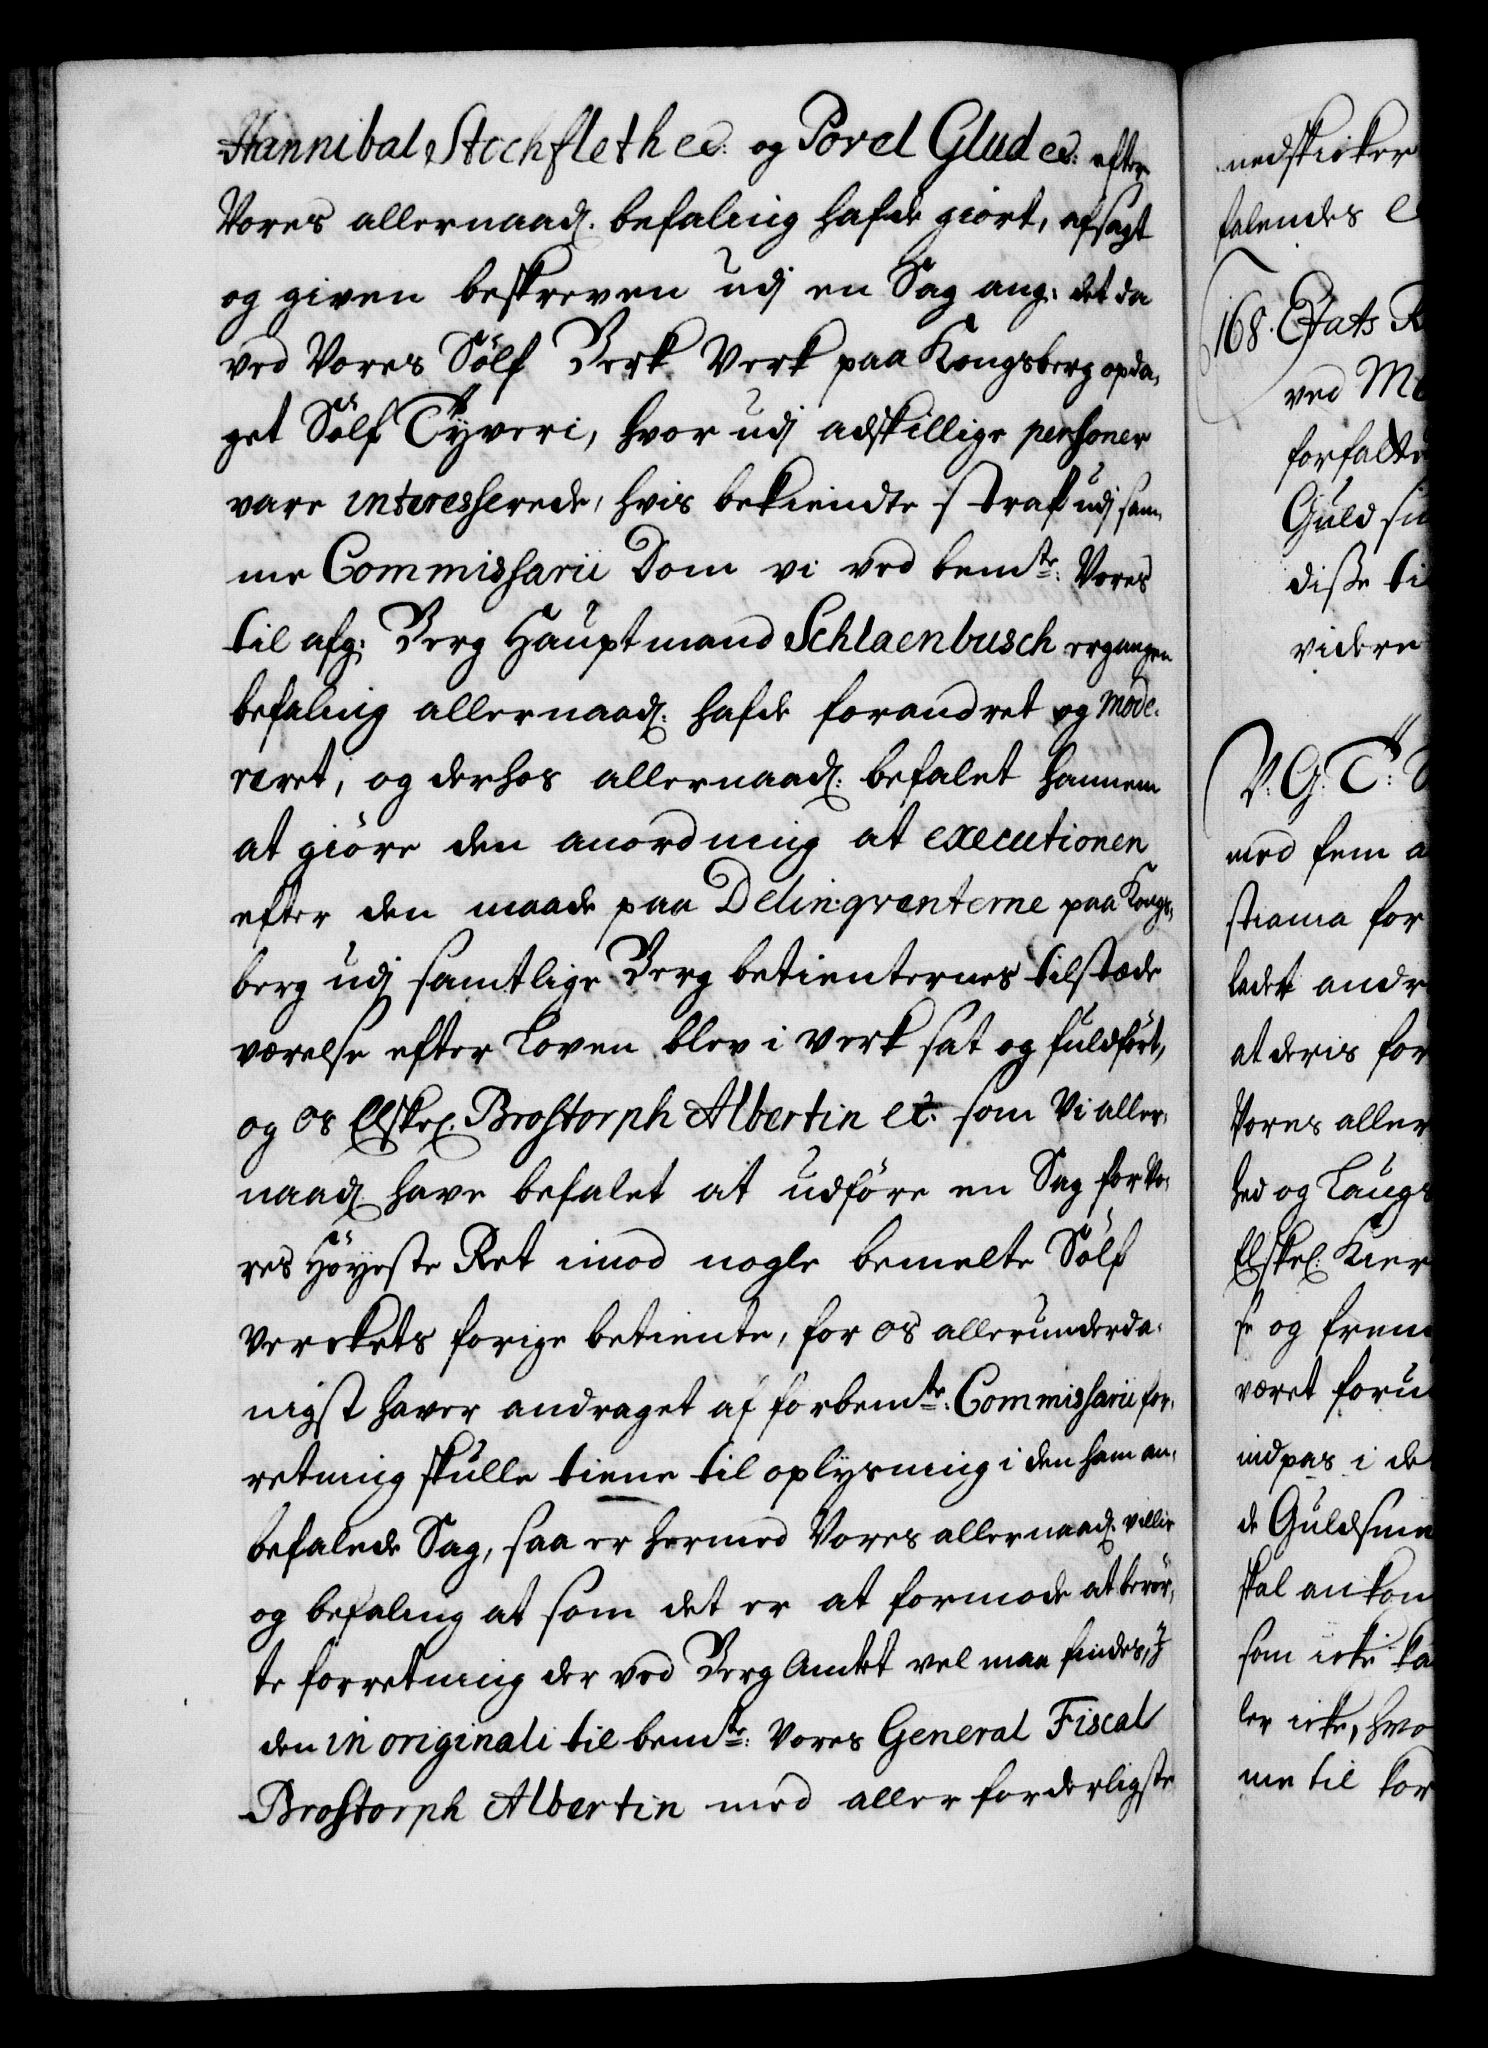 Hannibal Stochfleth ec: og Povel Glud ec: efter
Vores allernaad. befaling hafde giort, afsagt
og given beskreven udj en Sag ang: det da
ved Vores Sølf Berk Verk paa Kongsberg opda,
get Sølf Tyveri, hvor udj adskillige personer
vare interesserede, hvis bekiendte straf udj sam,
me Commissarii Dom vi ved bemte: Vores
til afg: Berg Hauptmand Schlaenbusch ergangen
befaling allernaad: hafde forandret og mode,
reret, og derhos allernaad: befalet hannem
at giøre den anordning at executionen
efter den maade paa Delinqventerne paa Kongs,
berg udj samtlige Berg betienternes tilstæde
værelse efter Loven blev i verk sat og fuldført,
og os Elskel. Brostorph Albertin ec: som Vi aller,
naad have befalet at udføre en Sag for Vo,
res Høyeste Ret imod nogle bemelte Sølf
Verckets forige betiente, for os allerunderda,
nigst haver andraget af forbemte: Commissarii for,
retning skulle tiene til oplysning i den ham an,
befalede Sag, saa er hermed Vores allernaad: villie
og befaling at som det er at formode at berør,
te forretning der ved Berg Amtet vel maa findes, J
den in originali til bemte: Vores General Fiscal
Brostorph Albertin med aller forderligste
nedskicker
falendes
168. Etats R
ved M
forfatte
Guld
disse ti
videre
V. G. T:
med fem
stiania for
ladet andr
at deris for
Vores aller
hed og Laugs
Elskel: Kier
se og frem
været foru
indpas i de
de Guldsme
skal ankom
som icke ka
ler icke, hvo
me til kor